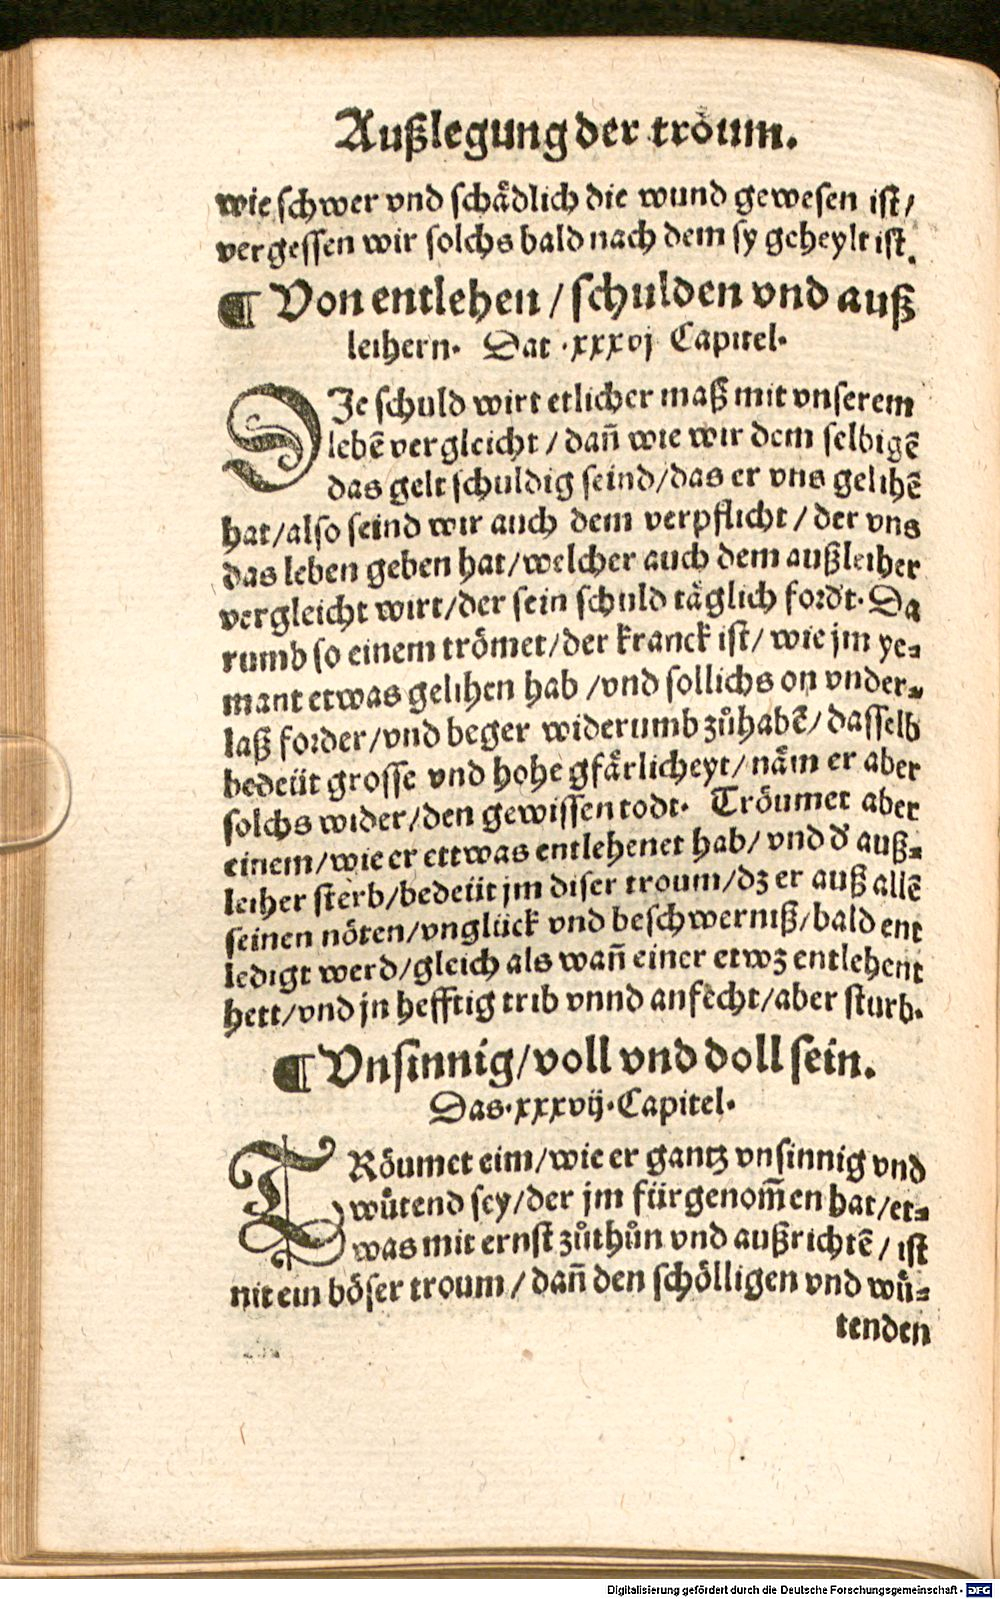 Außlegung der tröum.
wie schwer vnd schådlich die wund gewesen ist/
vergessen wir solchs bald nach dem sy geheylt ist.
¶ Von entlehen / schulden vnd auß
leihern. Dat .xxxvj Capitel.
DJe schuld wirt etlicher maß mit vnserem
lebē vergleicht / dañ wie wir dem selbigē
das gelt schuldig seind/das er vns gelihē
hat/also seind wir auch dem verpflicht / der vns
das leben geben hat/welcher auch dem außleiher
vergleicht wirt/der sein schuld täglich fordt. Da
rumb so einem trömet/der kranck ist/ wie jm ye⸗
mant etwas gelihen hab /vnd sollichs on vnder⸗
laß forder/vnd beger widerumb zůhabē/ dasselb
bedeüt grosse vnd hohe gfårlicheyt/ nåm er aber
solchs wider/den gewissen todt. Tröumet aber
einem/wie er ettwas entlehenet hab/ vnd d' auß⸗
leiher sterb/bedeüt jm diser troum/dz er auß allē
seinen nöten/vnglück vnd beschwerniß/bald ent
ledigt werd/gleich als wañ einer etwz entlehent
hett/vnd jn hefftig trib vnnd anfecht/aber sturb.
¶ Vnsinnig/voll vnd doll sein.
Das.xxxvij.Capitel.
TRöumet eim/wie er gantz vnsinnig vnd
wůtend sey/der jm fürgenom̃en hat/et⸗
was mit ernst zůthůn vnd außrichtē / ist
nit ein böser troum / dañ den schölligen vnd wů⸗
tenden
Digitalisierung gefördert durch die Deutsche Forschungsgemeinschaft - DFG